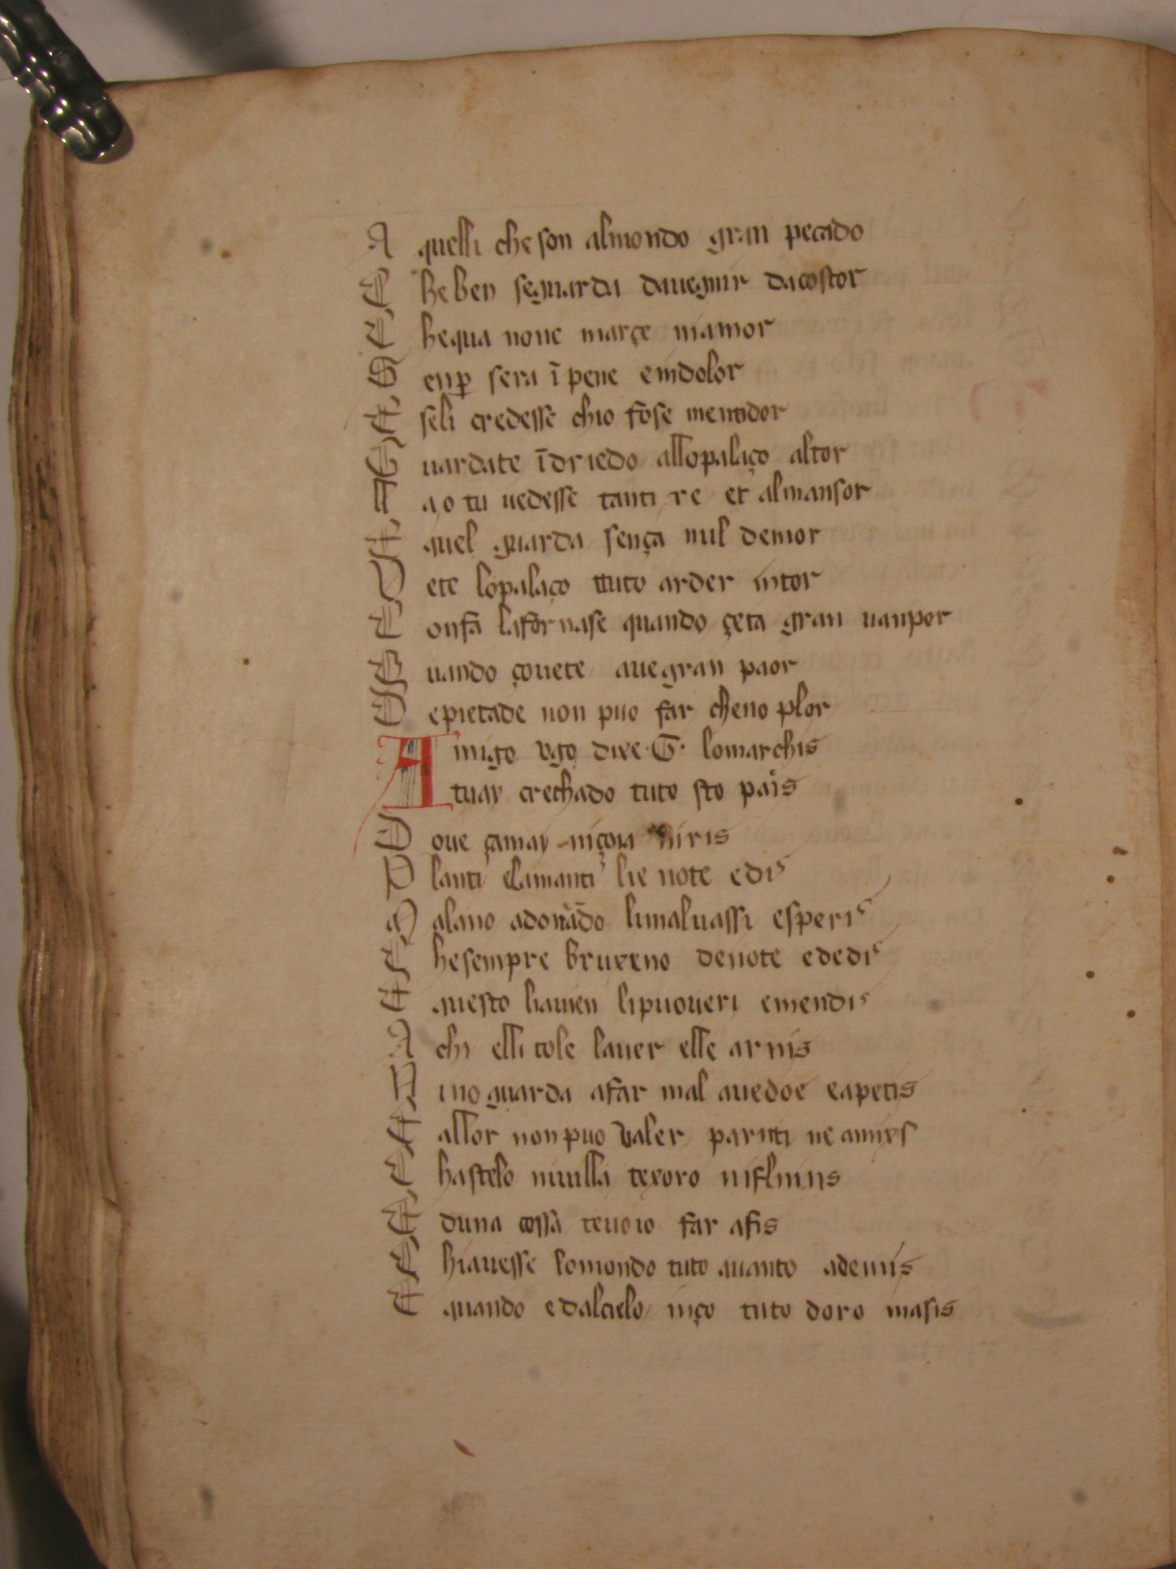 A quelli che son almondo gran pecado
C heben seguarda dauegnir dacostor
C hequa none março mamor
S enp̱ sera ı̄ pene emdolor
E seli credesse chio fose mentidor
G uardate ı̄driedo allopalaço altor
A ao tu uedesse tanti re et almansor
E quel guarda sença nul demor
V ete lopalaço tuto arder intor
C onfa lafornase quando çeta gran uanpor
Q uando çouete auegran paor
D epietade non puo far cheno plor
A migo vgo dixe .G. lomarchis
A tuay crechado tuto sto pais
D oue çamay niçoia
P lanti elamanti lie note edis
M alano adonādo limaluassi esperis
C hesempre bruxeno denote ededis
E questo hauien lipuoueri emendis
A chi elli tole lauer elle arnis
N ino guarda afar mal auedoe eapetis
E allor nonpuo valer parenti ne amixs
C hastelo niuilla texoro
E duna cossa teuoio far afis
C hiauesse lomondo tuto quanto ademis
E quando edalcielo inço tuto doro masis